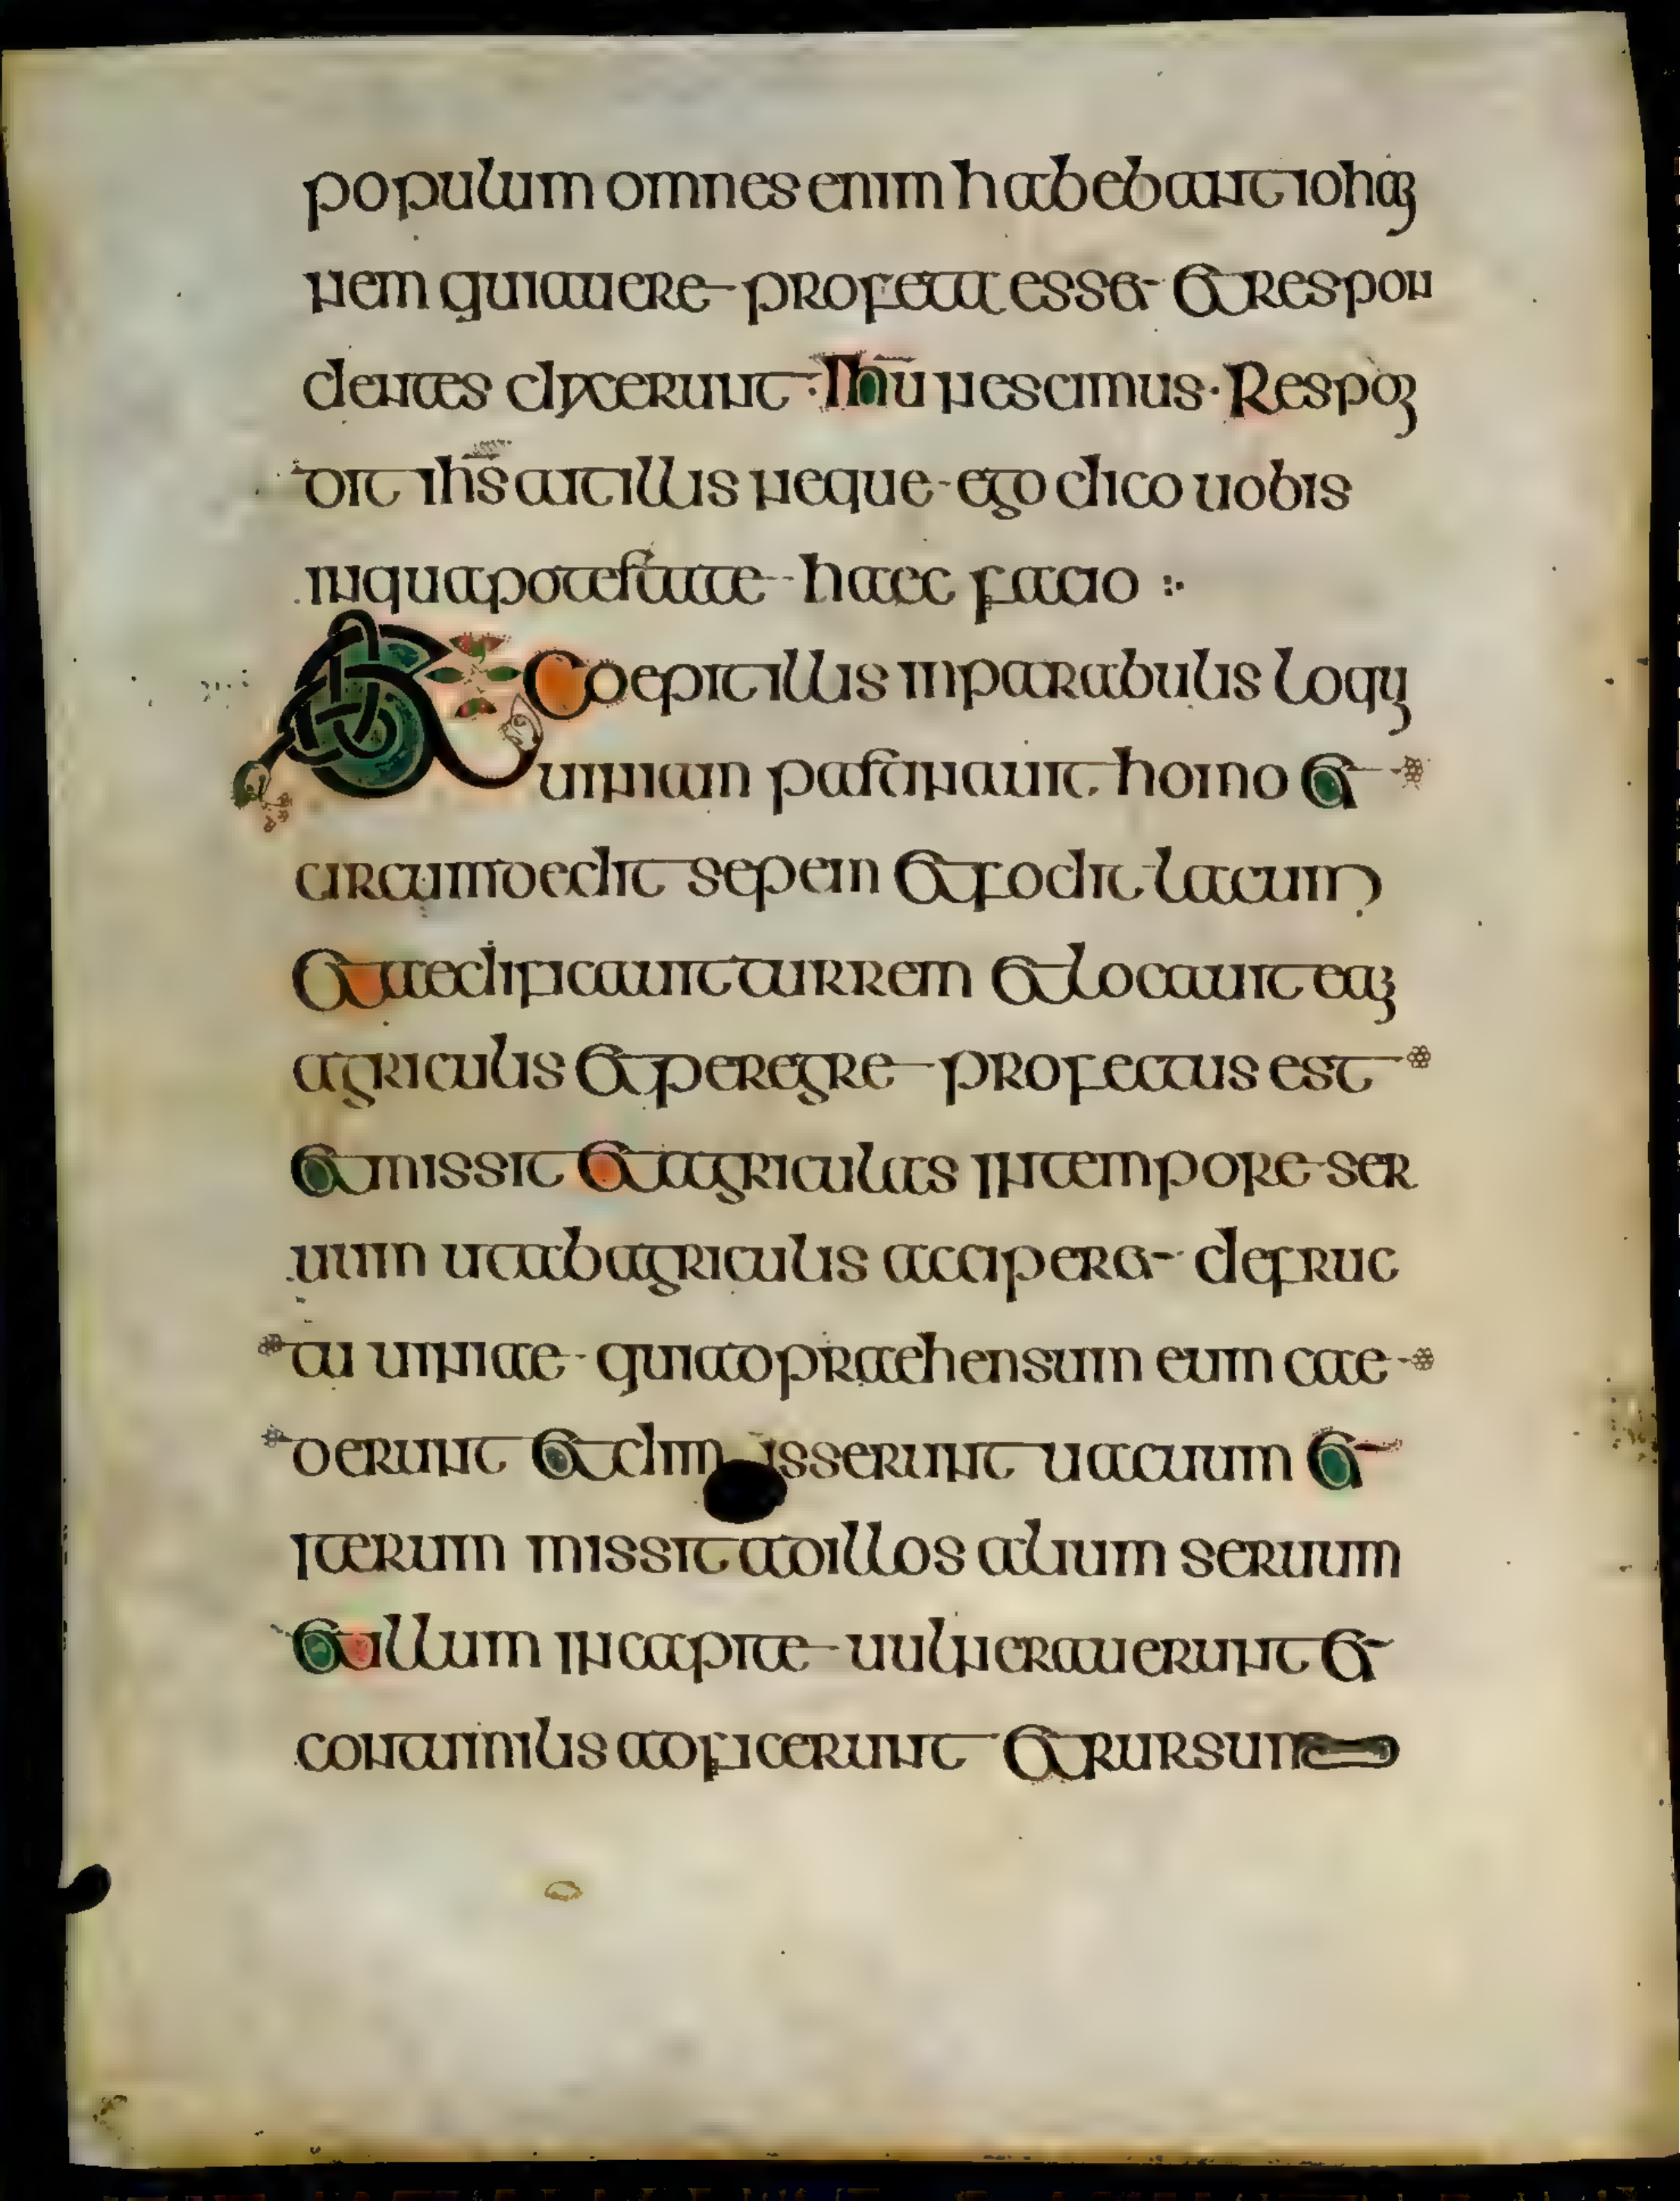 populum omnes enim habebant iohan
nem quia uere profeta esset et respon
dentes dixerunt ihu nescimus · Respon
dit ihs ait illis neque ego dico uobis
in qua potestate haec facio :·
Et Coepit illis in parabulis loqui
uiniam pastinauit homo et
circumdedit sepem et fodit lacum
et aedificauit turrem et locauit eam
agriculis et peregre profectus est
et missit et agriculas in tempore ser
uum ut ab agriculis acciperet de fruc
tu uiniae qui adpraehensum eum cae
derunt et dimisserunt uacuum et
iterum missit ad illos alium seruum
et illum in capite uulnerauerunt et
contumilis adficerunt et rursum